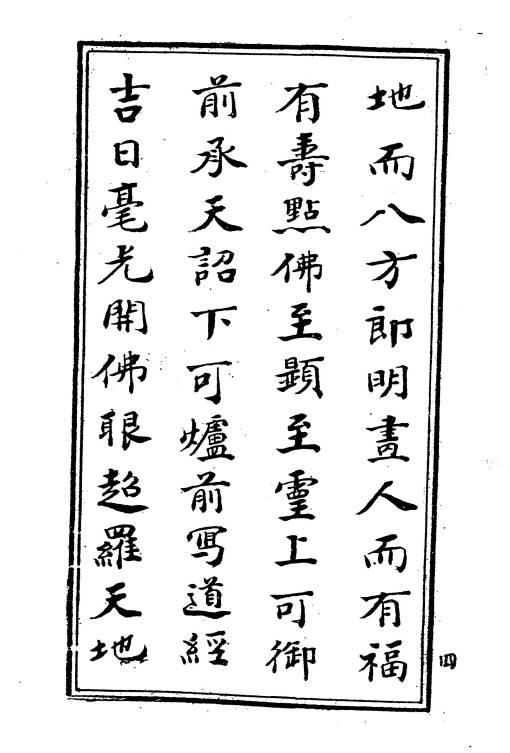 地而八方即明畫人而有福
有壽點佛至顕至靈上可御
前承天詔下可爐前寫道經
吉日毫光開佛眼超羅天地
四